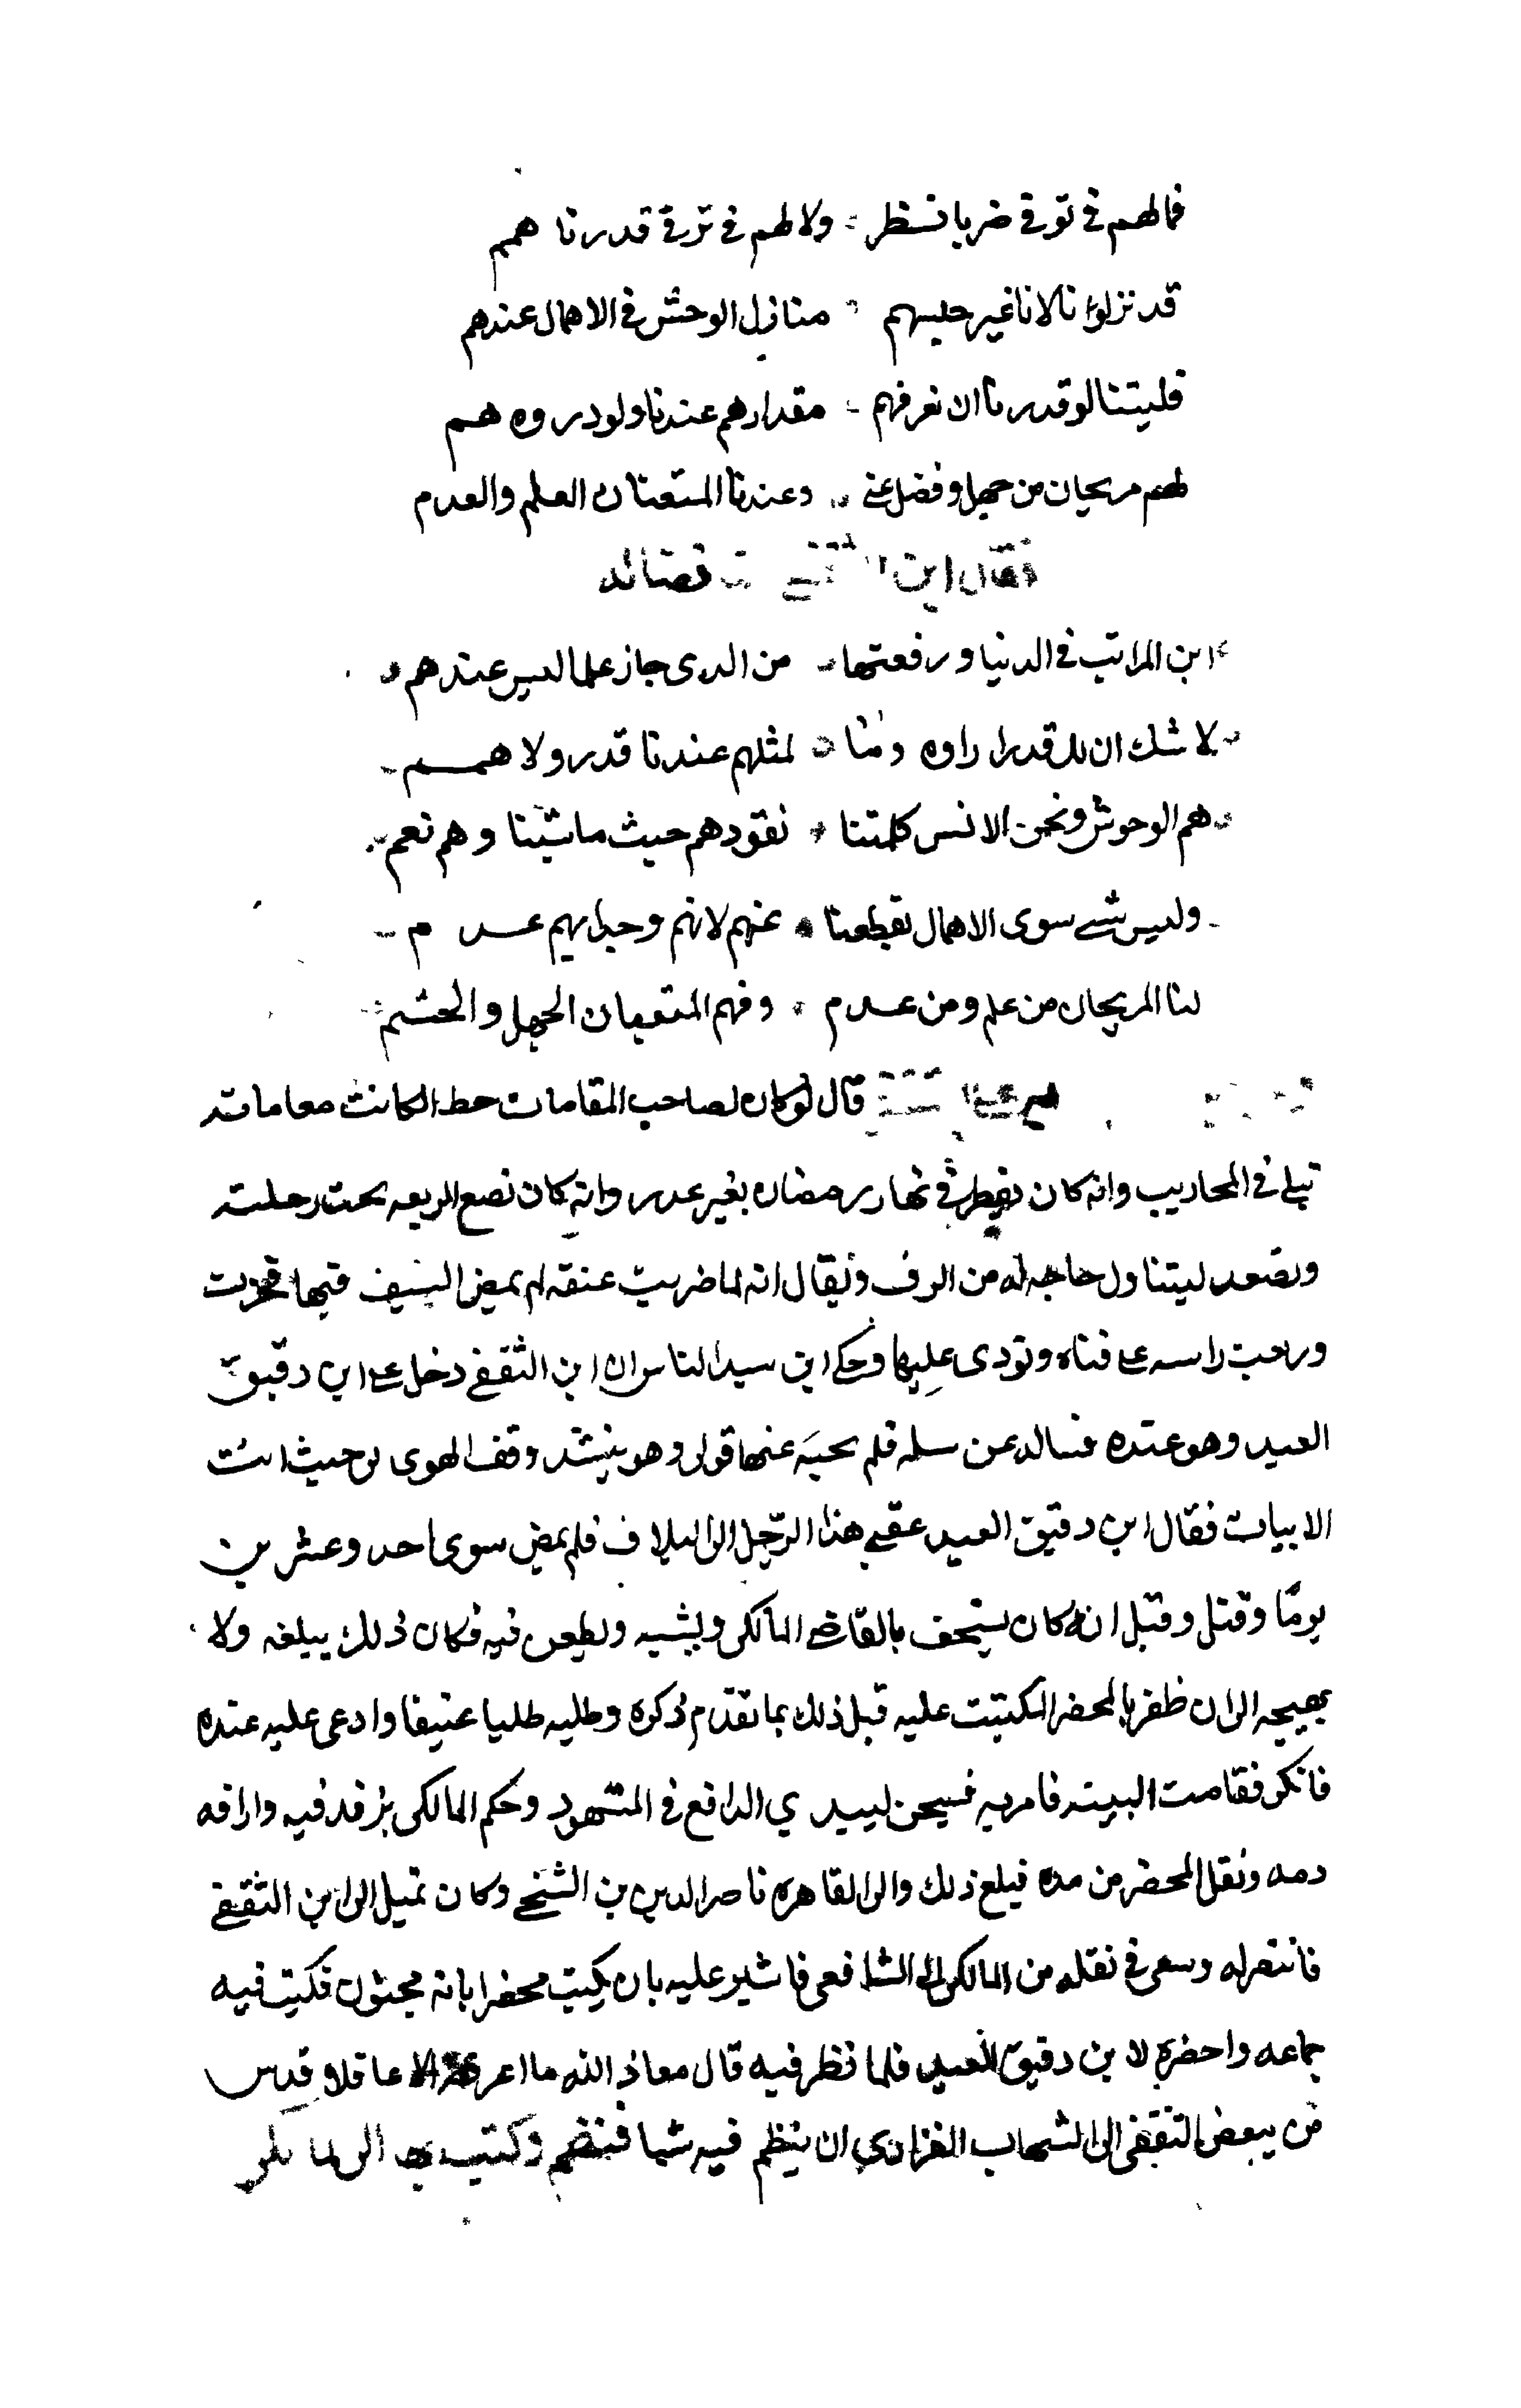 فما لهم في توقي ضرنا نظر ولا لهم في ترقي قدرنا همم
قد نزلونا لانا غير جنسهم منازل الوحش في الاهمال عندهم
فليتنا لو قدرنا ان نعرفهم مقدارهم عندنا ولو دروه هم
لهم مريحان من جهل وفضل غنى وعندنا المتعبان العلم والعدم
فقال ابن
اين المراتب في الدنيا ورفعتها من الدى حاز علما ليس عندهم
لا شك ان لنا قدرا راوه وما لمثلهم عندنا قدر ولا همم
هم الوحوش ونحن الانس حكمتنا نقودهم حيث ما شينا وهم نعم
وليس شي سوى الاهمال يقطعنا عنهم لانهم وجدانهم عدم
لنا المريحان من علم ومن عدم وفيهم المتعبان الجهل والحشم
قال لو كان لصاحب المقامات حظ لكانت مقاماته
تتلى في المحاريب وانه كان يفطر في نهار رمضان بغير عدر وانه كان يضع الربعه تحت رجليه
ويصعد ليتناول حاجه له من الرف ويقال انه لما ضربت عنقه لم يمض السيف فيها فحزت
ورفعت راسه على قناه ونودى عليها وحكى ابن سيد الناس ان ابن الثقفي دخل على ابن دقيق
العيد وهو عنده فساله عن مسله فلم يجبه عنها فولى وهو ينشد وقف الهوى بي حيث انت
الابيات فقال ابن دقيق العيد عقبى هذا الرجل الى التلاف فلم يمض سوى احد وعشرين
يومًا وقتل وقيل انه كان يستخف بالقاضى المالكى ويسبه ويطعن فيه فكان ذلك يبلغه ولا
يهيجه الى ان ظفر بالمحضر المكتتب عليه قبل ذلك بما تقدم ذكره وطلبه طلبا عنيفا وادعى عليه عنده
فانكر فقامت البينه فامر به فسجن ليبدي الدافع في الشهود وحكم المالكى بزندقته واراقه
دمه ونقل المحضر من مده فبلغ ذلك والى القاهره ناصر الدين بن الشيخي وكان يميل الى ابن الثقفي
فانتصر له وسعى في نقله من المالكى الى الشافعى فاشير عليه بان يكتب محضرا بانه مجنون فكتب فيه
جماعه واحضر لابن دقيق العيد فلما نظر فيه قال معاذ الله ما اعرفه الا عاقلا وقدس
من يبغض الثقفى الى الشهاب الغزازي ان ينظم فيه شيا فنظم وكتب به الى